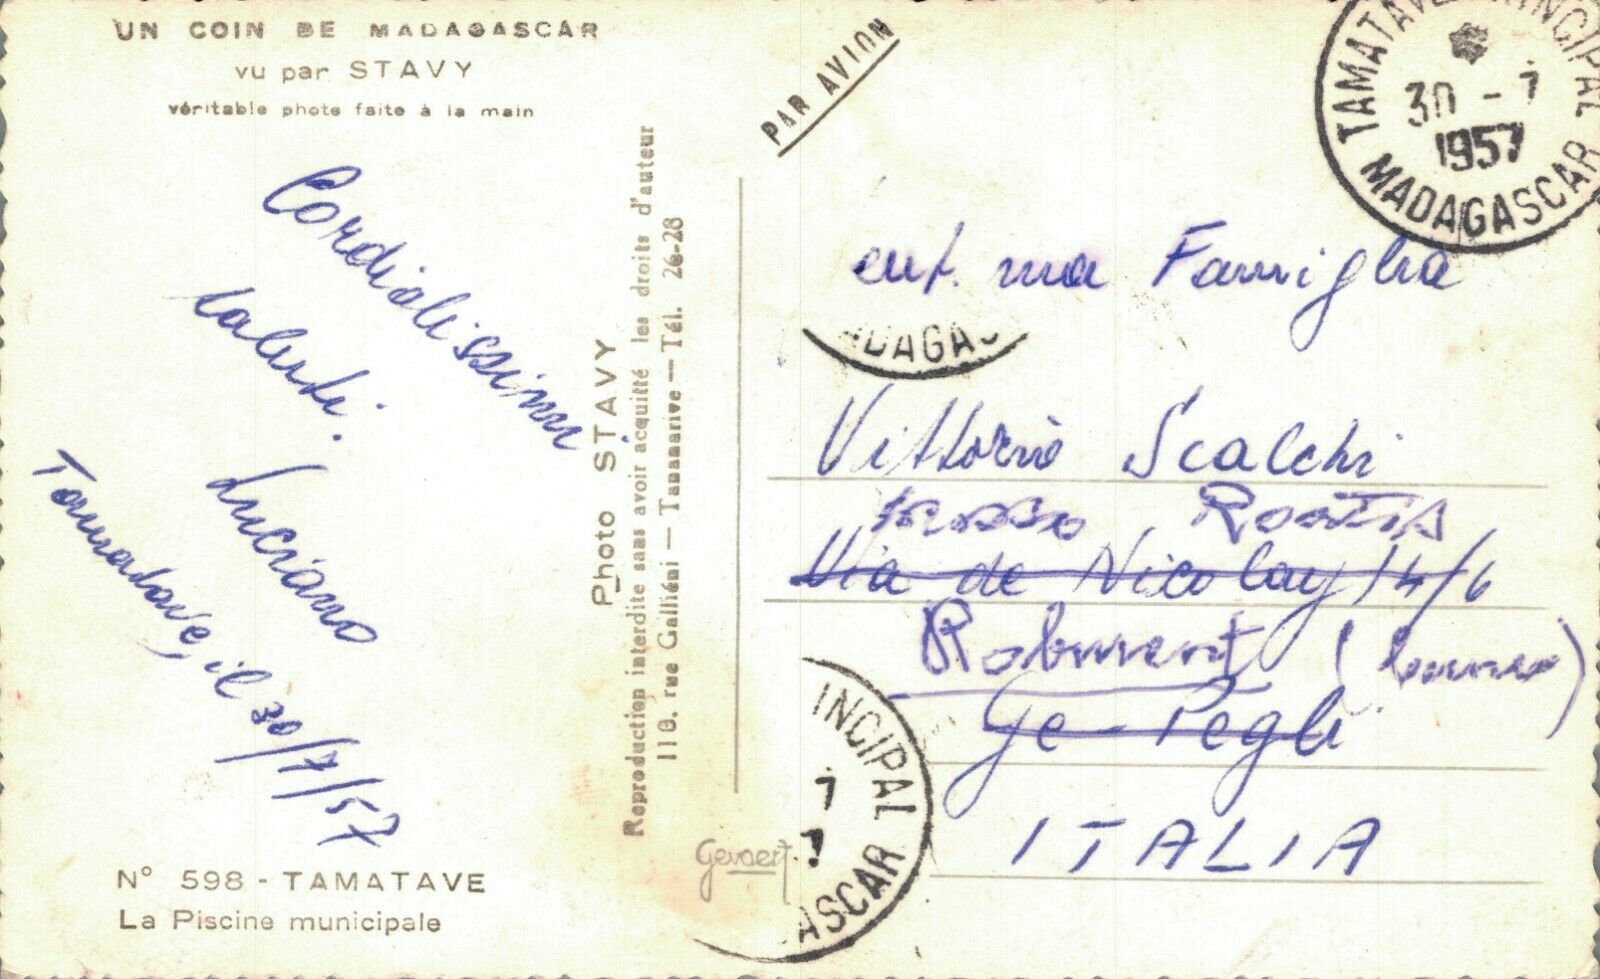 UN COIN DE MADAGASCAR
vu par STAVY
véritable photo faite à la main
Cordialissimi
saluti.
Luciano
Tamatave, il 30/7/57
N° 598 - TAMATAVE
La Piscine municipale
Photo STAVY
Reproduction interdite sans avoir acquitté les droits d'auteur
110, rue Galliéni — Tananarive — Tél. 26-28
Gevaert
PAR AVION
TAMATAVE PRINCIPAL
30 - 7
1957
MADAGASCAR
ma Famiglia
ADAGAS
Vittorio Scalchi
presso
Via de Nicolay 14/6
Roburent (Cuneo)
Ge-Pegli
ITALIA
INCIPAL
7
7
ASCAR